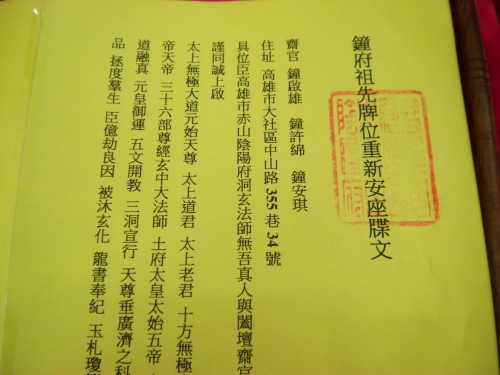 鐘府祖先牌位重新安座牒文
齋官 鐘啟雄 鐘許綿 鐘安琪
住址 高雄市大社區中山路 355 巷 34 號
具位臣高雄市赤山陰陽府洞玄法師無吾真人與闔壇齋官
謹同誠上啟
太上無極大道元始天尊 太上道君 太上老君 十方無極
帝天帝 三十六部尊經玄中大法師 土府太皇太始五帝
道融真 元皇御運 五文開教 三洞宣行 天尊垂廣濟之科
品 拯度羣生 臣億劫良因 被沐玄化 龍書奉紀 玉札瓊